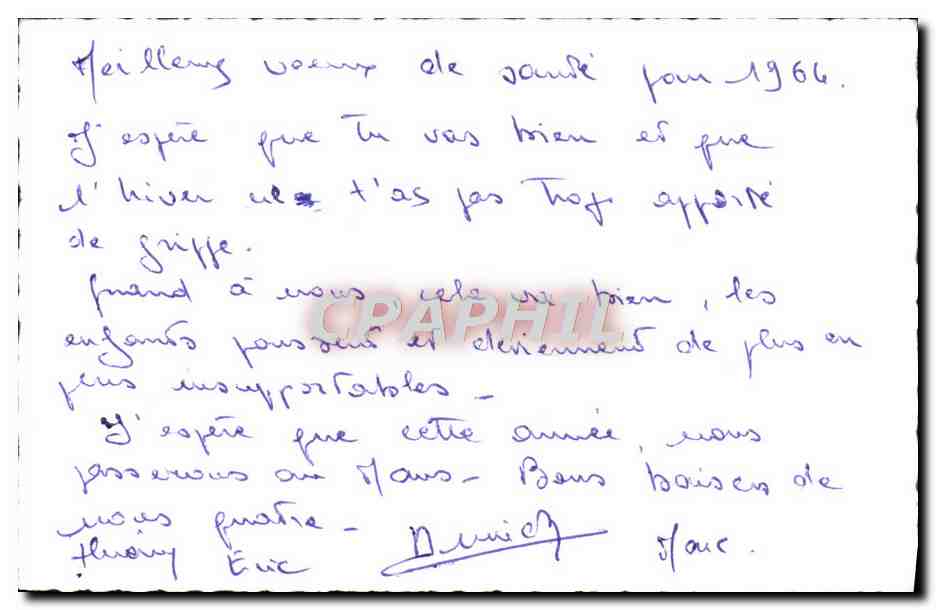 Meilleurs voeux de santé pour 1964.
J'espère que tu vas bien et que
l'hiver ne t'as pas trop apporté
de grippe.
Quand à nous, cela va bien, les
enfants poussent et deviennent de plus en
plus insupportables -
J'espère que cette année, nous
passerons au Mans - Bons baisers de
nous quatre -
Thierry Eric Annick Marc.
CPAPHIL